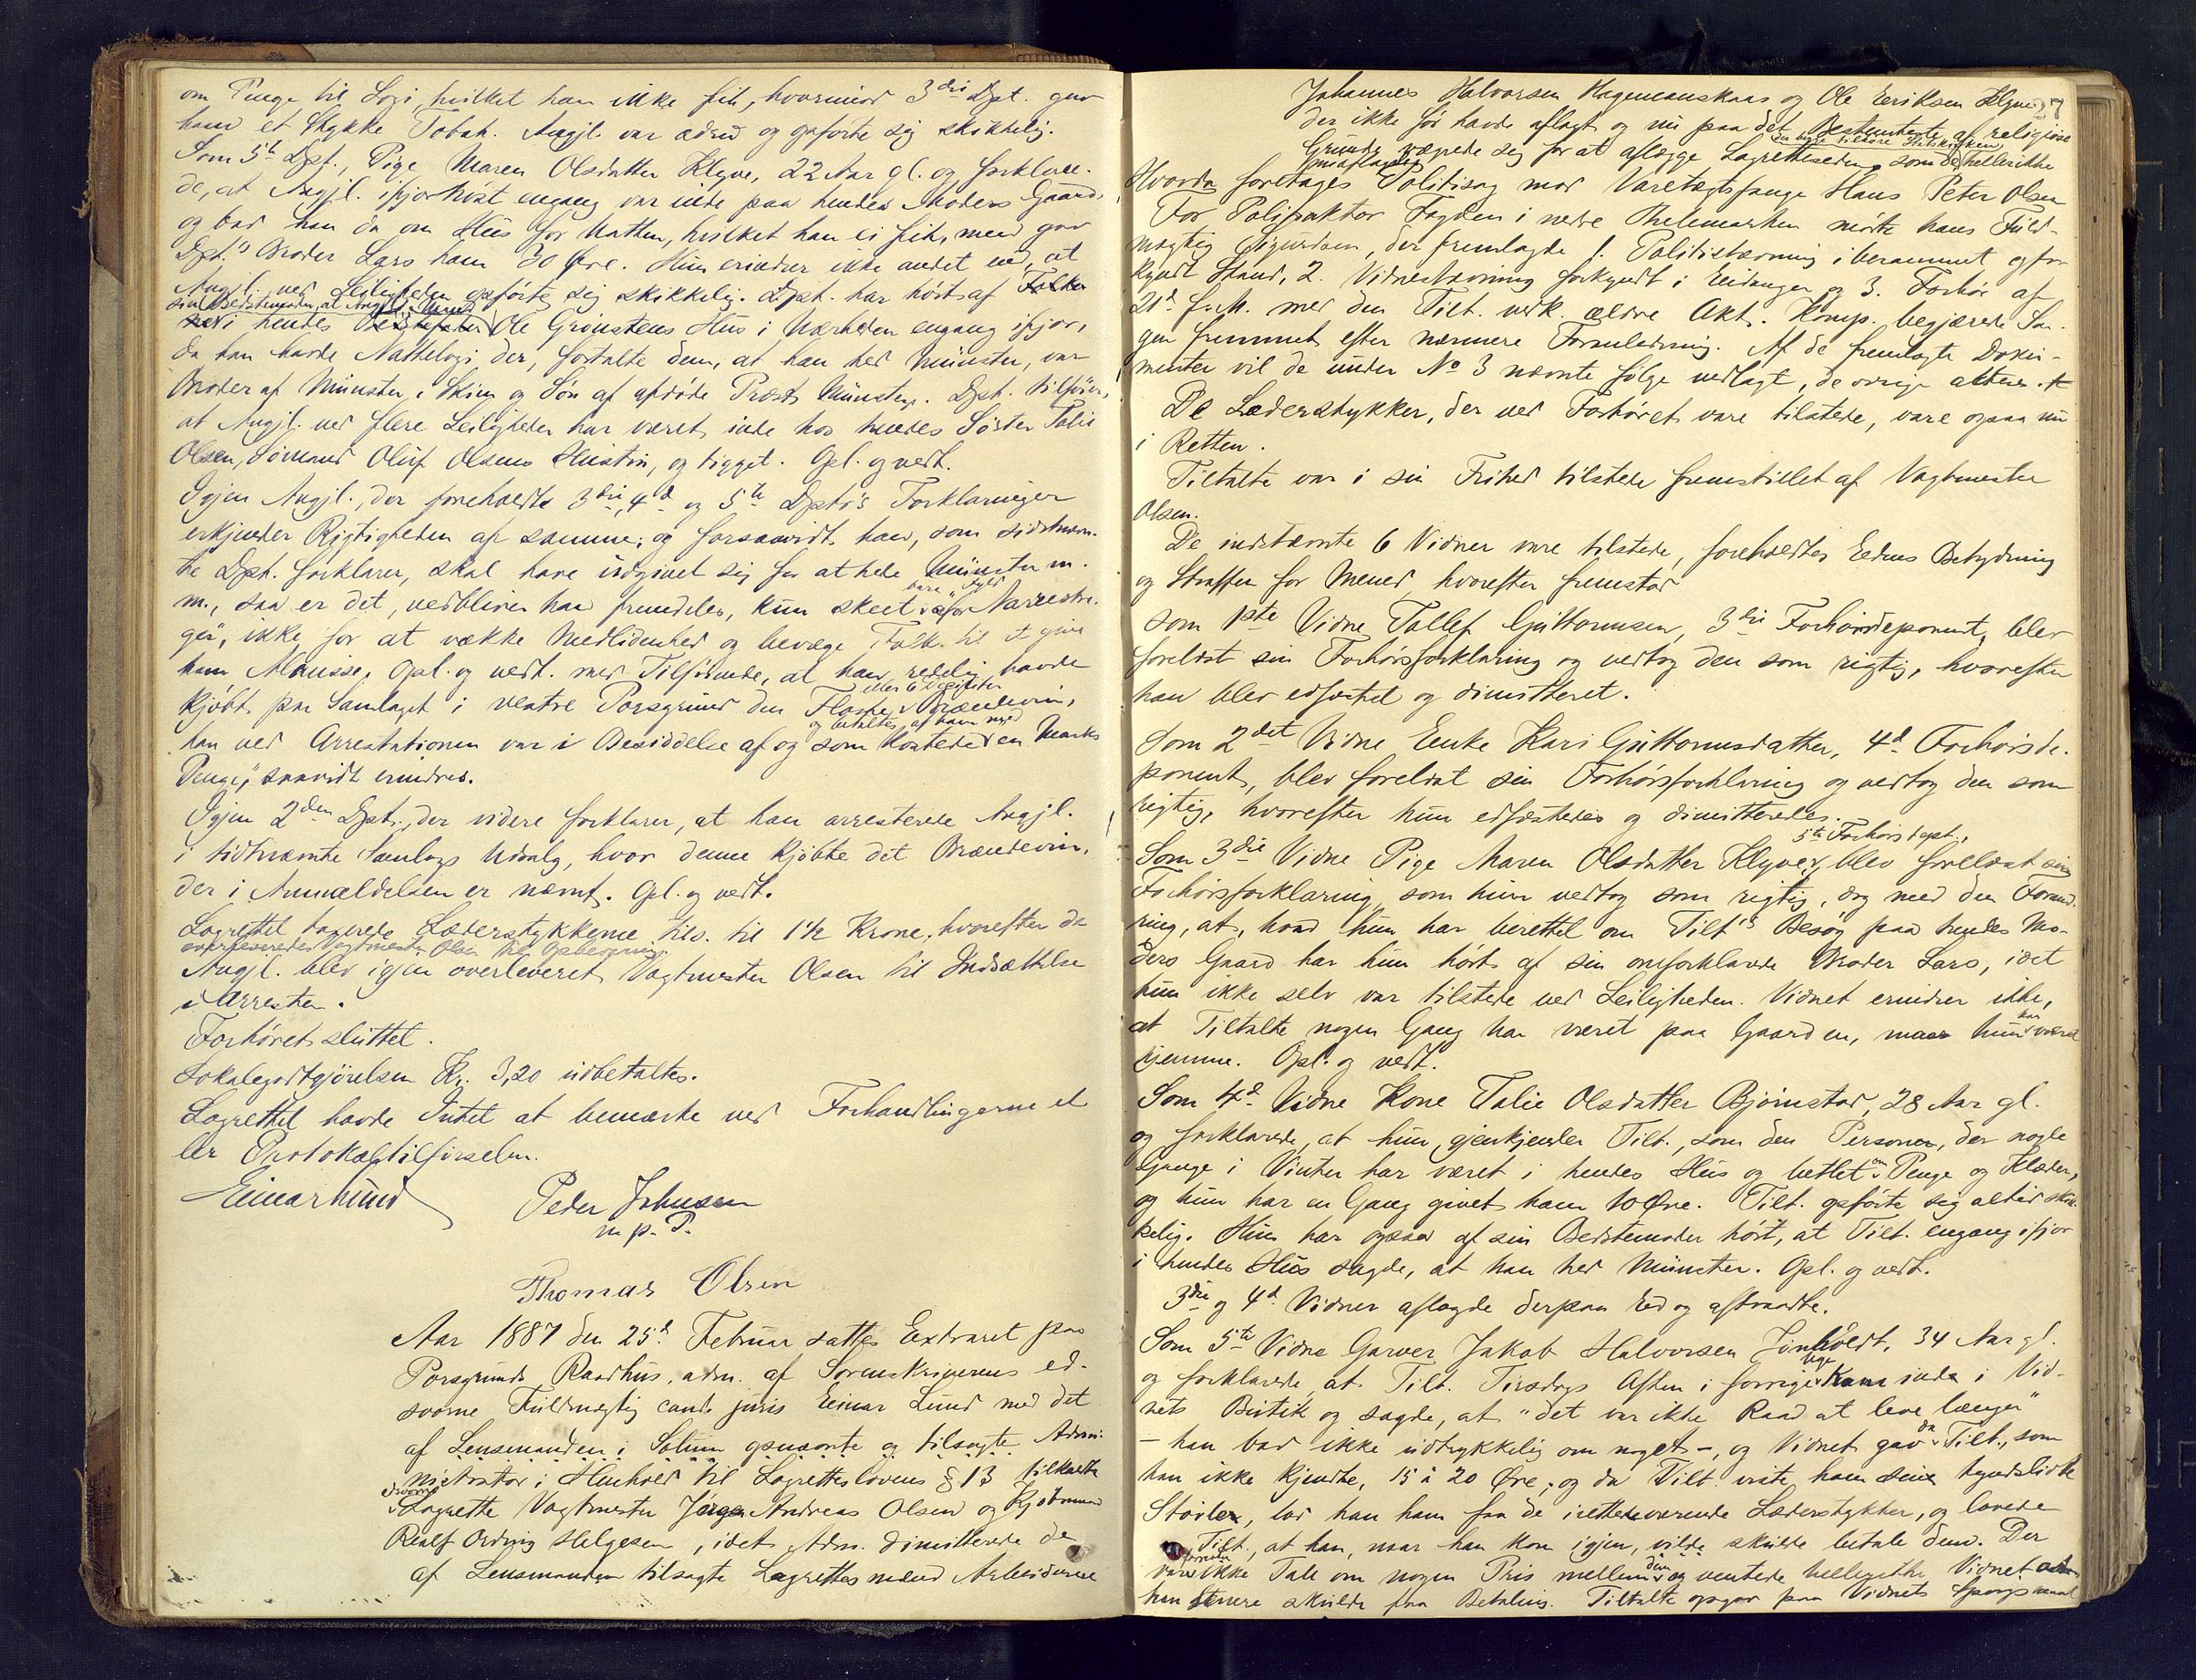 om Penge til Logi, hvilket han ikke fik, hvorimod 3die Dpt. gav
ham et Stykke Tobak. Angjl. var ædru og opførte sig skikkelig.
Som 5te Dpt., Pige Maren Olsdatter Klyve, 22 Aar gl. og forklare-
de, at Angjl. ifjor høst engang var inde paa hendes Moders Gaard,
og bad han da om Hus for Natten, hvilket han ei fik, men gav
Dpt.s Broder Lars ham 30 Øre. Hun erindrer ikke andet end, at
Angjl. ved Leiligheden opførte sig skikkelig. Dpt. har hørt af Folke
sin Bedstemoder, at Angjl.
i hendes Bedstefader Ole Grønstens Hus i Nærheden engang ifjor,
da han havde Nattelogi der, fortalte dem, at han hed Münster, var
Broder af Münster i Skien og Søn af afdøde Præst Münster. Dpt. tilføier,
at Angjl. ved flere Leiligheder har været inde hos hendes Søster Talie
Olsen, Sømand Oluf Olsens Hustru, og tigget. Opl. og vedt.
Igjen Angjl., der foreholdt 3die, 4de og 5te Dpts's Forklaringer
erkjender Rigtigheden af samme; og forsaavidt han, som sidstnævn-
te Dpt. forklarer, skal have udgivet sig for at hede Münster m.
m., saa er det, vedbliver han fremdeles, kun skeet bare for Narrestre-
ger", ikke for at vække Medlidenhed og bevæge Folk til at give
ham Almisse. Opl. og vedt. med Tilføiende, at han redelig havde
kjøbt paa Samlaget i vestre Porsgrund den Flaske eller 6 Deciliter Brændevin,
han ved Arrestationen var i Besiddelse af og som kostede og betaltes af ham med en Marks
Penge", saavidt erindres.
Igjen 2den Dpt., der videre forklarer, at han arresterede Angjl.
i sidtnævnte Samlags Udsalg, hvor denne kjøbte det Brændevin,
der i Anmeldelsen er nævnt. Opl. og vedt.
Lagrettet taxerede Læderstykkerne tils. til 1 1/2 Krone, hvorefter de
overleveredes Vagtmester Olsen til Opbevaring.
Angjl. blev igjen overleveret Vagtmester Olsen til Indsættelse
i Arresten.
Forhøret sluttet.
Lokalegodtgjørelsen Kr. 3,20 udbetaltes.
Lagrettet havde Intet at bemærke ved Forhandlingerne el
ler Protokoltilførselen.
Einar Lund Peder Johnsen
m. p. P.
Thomas Olsen
Aar 1887 den 25d Februar sattes Extraret paa
Porsgrunds Raadhus, adm. af Sorenskriverens ed-
svorne Fuldmægtig cand. juris Einar Lund med det
af Lensmanden i Solum opnævnte og tilsagte Admi-
nistrator i Henhold til Lagretteslovens § 13 tilkaldte
svorne Lagrette Vagtmester Jørgen Andreas Olsen og Kjøbmand
Realf Ording Helgesen, idet Adm. dimitterede de
af Lensmanden tilsagte Lagrettesmænd Arbeiderne
Johannes Halvorsen Hagemanskaas og Ole Eriksen Klyve,
der ikke før havde aflagt og nu paa det Bestemteste af religiøse
Grunde vægrede sig for at aflægge Lagretteseden, som de heller ikke
Hvorda foretages Politisag mod Varetægtsfange Hans Peter Olsen
For Politifaktor Fogden i nedre Thelemarken mødte hans Fuld-
mægtig Sigurdsen, der fremlagde 1. Politistævning i beramnet og for
kyndt Stand, 2. Vidnestævning forkyndt i Eidanger og 3. Forhør af
21d f. M. med den Tilt. vedk. ældre Akt. Komp. begjærede Sa-
gen fremmet efter nærmere Formulering. Af de fremlagte Doku-
menter vil de under No 3 nævnte følge vedlagt, de øvrige akteres.
De Læderstykker, der ved Forhøret vare tilstede, vare ogsaa nu
i Retten.
Tiltalte var i sin Frihed tilstede fremstillet af Vagtmester
Olsen.
De indstævnte 6 Vidner vare tilstede, foreholdtes Edens Betydning
og Straffen for Mened, hvorefter fremstod
som 1ste Vidne Tallef Guttormsen, 3die Forhørsdeponent, blev
forelæst sin Forhørsforklaring og vedtog den som rigtig, hvorefter
han blev edfæstet og dimitteret.
Som 2det Vidne Enke Kari Guttormsdatter, 4d Forhørsde-
ponent, blev forelæst sin Forhørsforklaring og vedtog den som
rigtig, hvorefter hun edfæstedes og dimitteredes.
Som 3die Vidne Pige Maren Olsdatter Klyve, 5te Forhørsdept., blev forelæst sin
Forhørsforklaring, som hun vedtog som rigtig, dog med den Foran-
ring, at, hvad hun har berettet om Tilt's Besøg paa hendes Mo-
ders Gaard har hun hørt af sin omforklarede Broder Lars, idet
hun ikke selv var tilstede ved Leiligheden. Vidnet erindrer ikke,
at Tiltalte nogen Gang har været paa Gaarden, naar hun har været
hjemme. Opl. og vedt.
Som 4d Vidne Kone Talie Olsdatter Bjørnstad, 28 Aar gl.
og forklarede, at hun gjenkjender Tilt., som den Person, der nogle
Gange i Vinter har været i hendes Hus og bettlet om Penge og Klæder,
og hun har en Gang givet ham 10 Øre. Tilt. opførte sig altid skik-
kelig. Hun har ogsaa af sin Bedstemoder hørt, at Tilt. engang ifjor
i hendes Hus sagde, at han hed Münster. Opl. og vedt.
3die og 4d Vidner aflagde derpaa Ed og aftraadte.
Som 5te Vidne Garver Jakob Halvorsen 34 Aar gl.
og forklarede, at Tilt. Tirsdags Aften i forrige Uge kom inde i Vid-
nets Butik og sagde, at "det var ikke Raad at leve længer"
– han bad ikke udtrykkelig om noget –, og Vidnet gav da Tilt., som
han ikke kjendte, 15 à 20 Øre; og da Tilt. viste ham sine
Støvler, lod han ham faa de iretteværende Læderstykker, og lovede
Tilt., at han, naar han kom igjen, vilde skulde betale dem. Der
var ikke Tale om nogen Pris mellem dem og ventede hellerikke Vidnet at
han senere skulde faa Betaling. Tiltalte opgav paa Vidnets Spørgsmaal